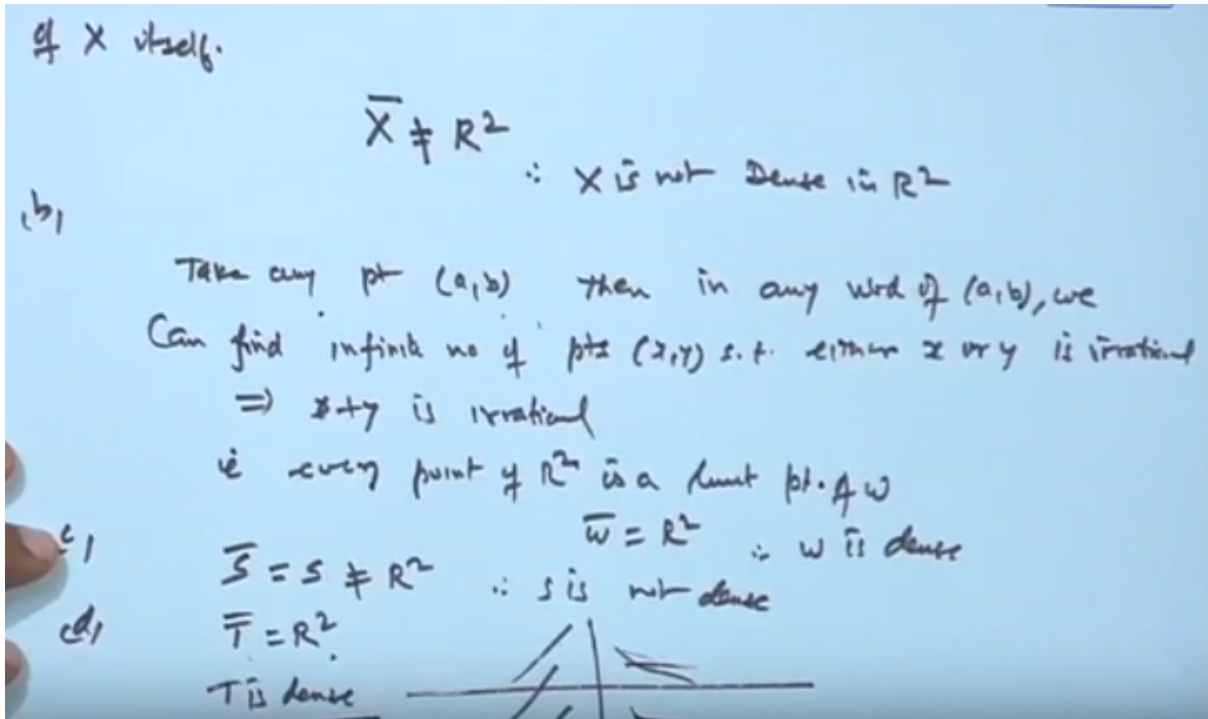 of X itself.
X̄ ≠ R²
∴ X is not Dense in R²
(b)
Take any pt (a,b) then in any nbd of (a,b), we
Can find infinite no of pts (x,y) s.t. either x or y is irrational
⇒ x+y is irrational
ie every point of R² is a limit pt. of W
W̄ = R² ∴ W is dense
(c) S̄ = S ≠ R² ∴ S is not dense
(d) T̄ = R².
T is dense